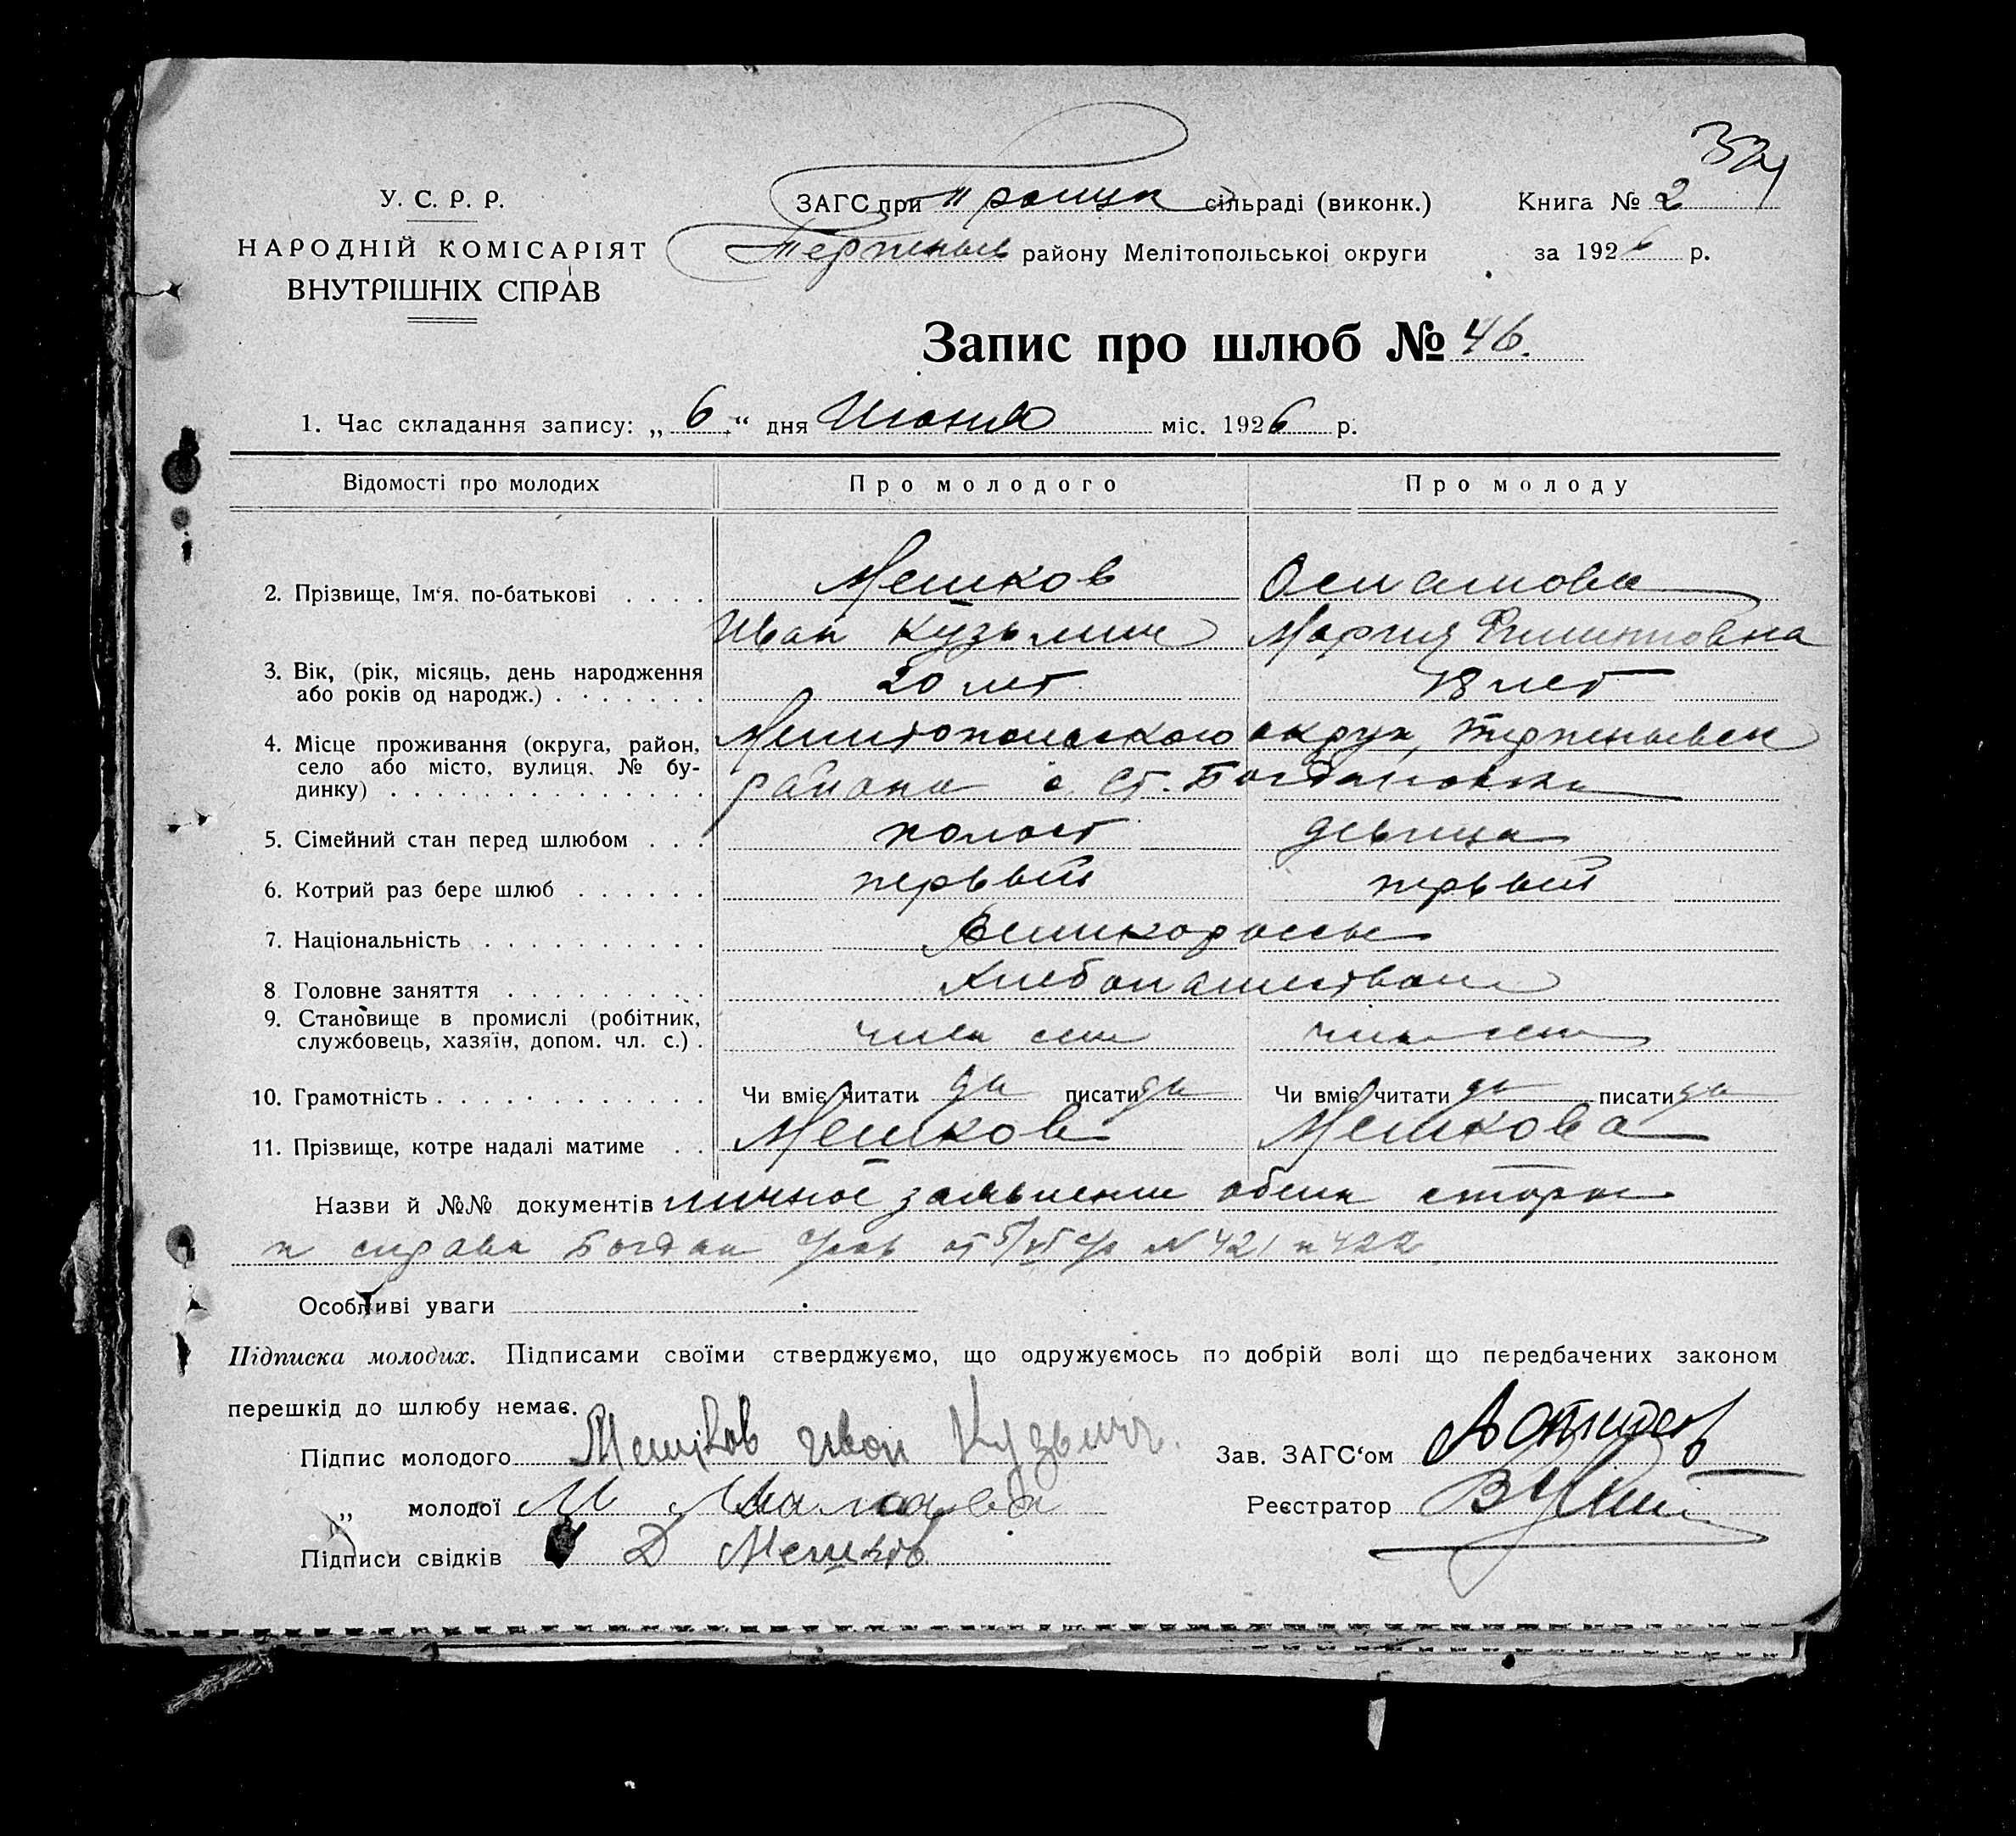 334
У. С. Р. Р.
НАРОДНІЙ КОМІСАРІЯТ
ВНУТРІШНІХ СПРАВ
ЗАГС при Троицк сільраді (виконк.)
Терпеньев району Мелітопольської округи
Книга № 2
за 1926 р.
Запис про шлюб № 46.
1. Час складання запису: „ 6 “ дня Июня міс. 1926 р.
Відомості про молодих Про молодого Про молоду
2. Прізвище, Ім‘я. по-батькові . . . . Мешков
Иван Кузьмич Мария Филипповна
3. Вік, (рік, місяць, день народження
або років од народж.) . . . . . . . 20 лет 18 лет
4. Місце проживання (округа, район, Мелитопольского округа, Терпеньевск
село або місто, вулиця. № бу- района с. Ст. Богдановка
динку) . . . . . . . . . . . . . .
5. Сімейний стан перед шлюбом . . . холост девица
6. Котрий раз бере шлюб . . . . . . первый первый
7. Національність . . . . . . . . . . Великороссы
8 Головне заняття . . . . . . . . . Хлебопашество
9. Становище в промислі (робітник,
службовець, хазяїн, допом. чл. с.) . член сем член сем
10. Грамотність . . . . . . . . . . . . Чи вміє читати да писати да Чи вміє читати да писати да
11. Прізвище, котре надалі матиме . . Мешков Мешкова
Назви й №№ документів личное заявление обеих сторон
и справки Богдан с/рав от 5/VI с/г № 421 и 422
Особливі уваги
Підписка молодих. Підписами своїми стверджуємо, що одружуємось по добрій волі що передбачених законом
перешкід до шлюбу немає.
Підпис молодого Мешков Иван Кузьмич.
Зав. ЗАГС‘ом
„ молодої М
Реєстратор
Підписи свідків Д Мешков